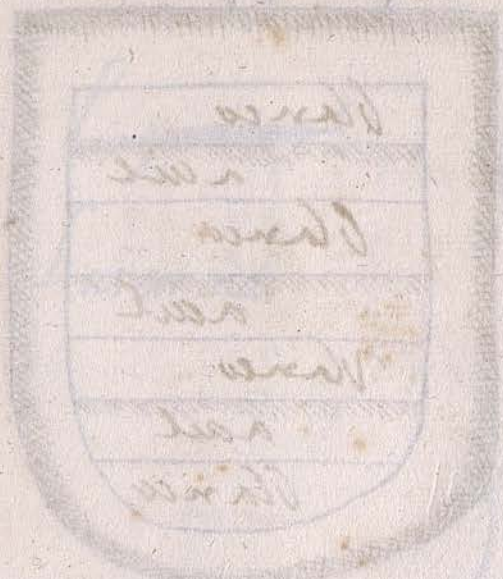 blanco
azul
blanco
azul
blanco
azul
blanco